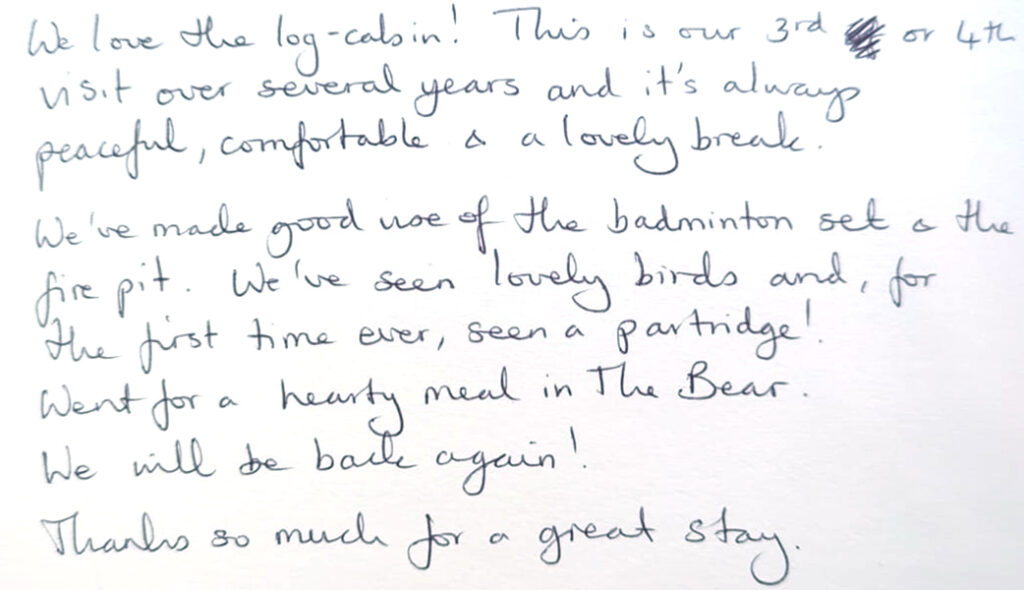 We love the log-cabin! This is our 3rd or 4th
visit over several years and it's always
peaceful, comfortable & a lovely break.
We've made good use of the badminton set & the
fire pit. We've seen lovely birds and, for
the first time ever, seen a partridge!
Went for a hearty meal in The Bear.
We will be back again!
Thanks so much for a great stay.